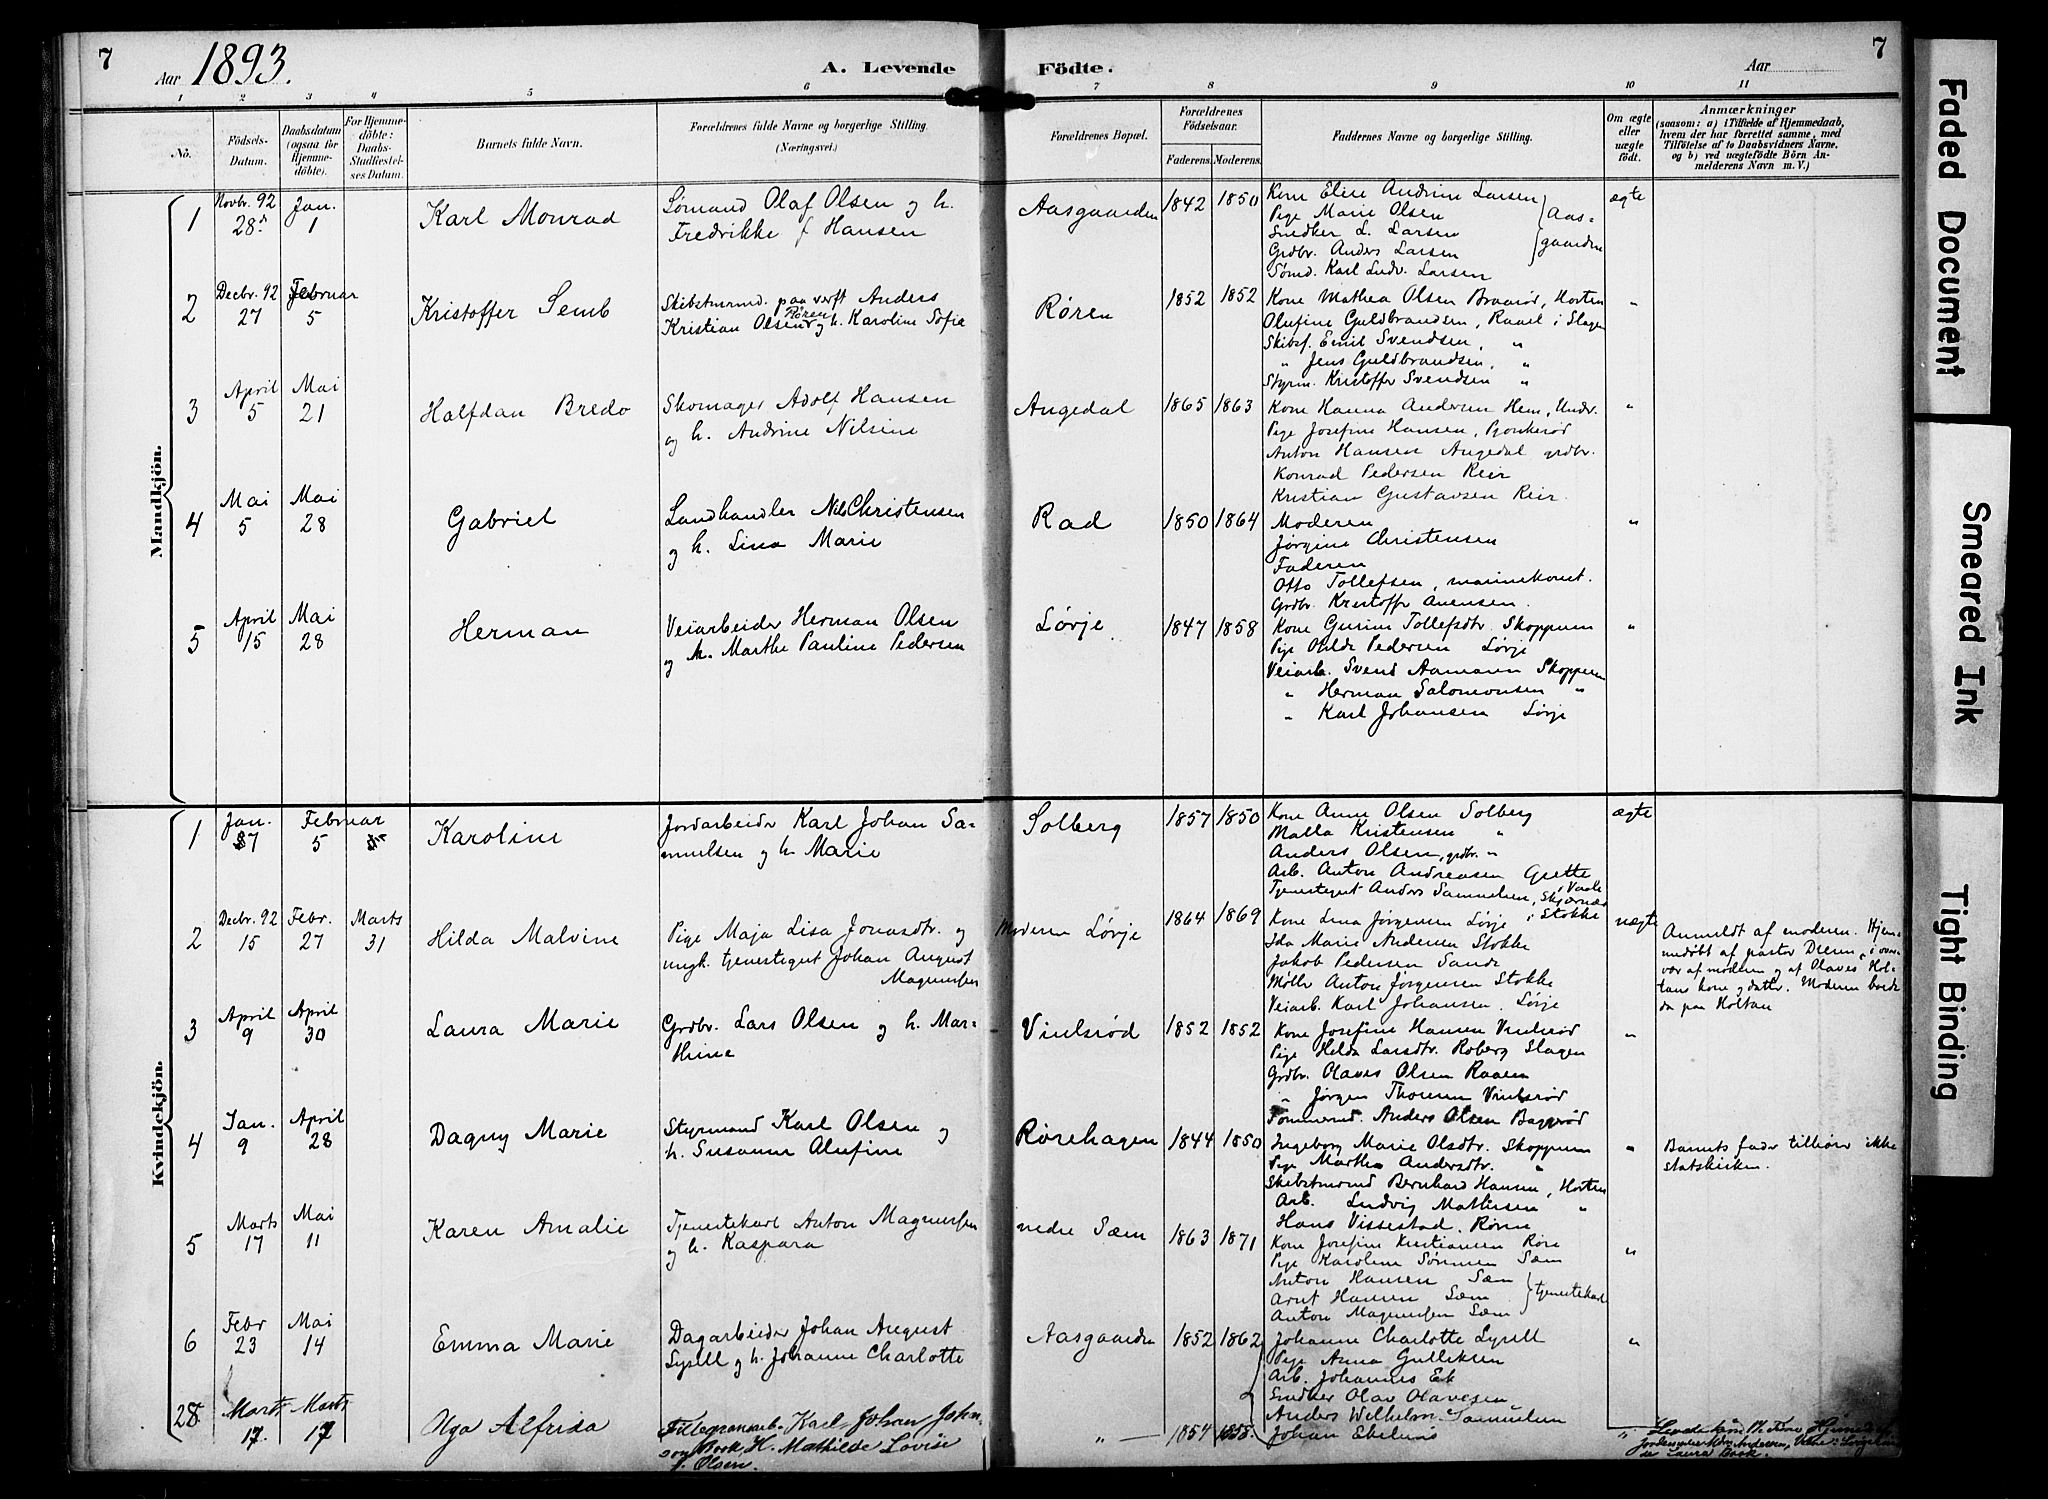 7
Aar 1893.
A. Levende
Födte.
Aar
7
1 2 3 4 5 6 7 8 9 10 11
No.
Födsels-Datum.
Daabsdatum (ogsaa for Hjemme-döbte).
For Hjemme-döbte: Daabs-Stadfæstel-ses Datum.
Barnets fulde Navn.
Forældrenes fulde Navne og borgerlige Stilling. (Næringsvei.)
Forældrenes Bopæl.
Forældrenes Födselsaar.
Faderens. Moderens.
Faddernes Navne og borgerlige Stilling.
Om ægte eller uægte födt.
Anmærkninger
(saasom: a) i Tilfælde af Hjemmedaab,
hvem der har forrettet samme, med
Tilföielse af to Daabsvidners Navne,
og b) ved uægtefödte Börn An-
melderens Navn m. V.)
Mandkjön.
1 Novbr. 92 28 Jan. 1 Karl Monrad
Sømand Olaf Olsen og h.
Fredrikke f Hansen
Aasgaarden 1842 1850
Kone Elise Andrine Larsen
Pige Marie Olsen
Snedker L. Larsen
Grdbr. Anders Larsen
Sømd. Karl Ludv. Larsen
Aas-
gaarden
ægte
2 Decbr. 92 27 Februar 5 Kristoffer Semb
Skibstmrmd. paa verft Anders
Kristian Olsen Røren og h. Karoline Sofie
Røren 1852 1852
Kone Mathea Olsen Braarød, Horten
Olufine Guldbrandsen, Raael i Slagen
Skibsf. Emil Svendsen, "
" Jens Guldbrandsen, "
Styrm. Kristoffer Svendsen "
"
3 April 5 Mai 21 Halfdan Bredo
Skomager Adolf Hansen
og h. Andrine Nilsine
Augedal 1865 1863
Kone Hanna Andersen Hem, Undr.
Pige Josefine Hansen,
Anton Hansen Augedal grdbr.
Konrad Pedersen Reir
Kristian Gustavsen Reir
"
4 Mai 5 Mai 28 Gabriel
Landhandler Nils Christensen
og h. Lina Marie
Rad 1850 1864
Moderen
Jørgine Christensen
Faderen
Otto Tollefsen, marinekonst.
Grdbr. Kristoffer
"
5 April 15 Mai 28 Herman
Veiarbeider Herman Olsen
og h. Marthe Pauline Pedersen
Lørje 1847 1858
Kone Gurine Tollefsdtr. Skoppum
Pige Hilda Pedersen Lørje
Veiarb. Svend Aamann Skoppum
" Herman Salomonsen "
" Karl Johansen Lørje
"
Kvindekjön.
1 Jan. 7 Februar 5 Karoline
Jordarbeider Karl Johan Sa-
muelsen og h. Marie
Solberg 1857 1850
Kone Anne Olsen Solberg
Malla Kristensen "
Anders Olsen, grdbr. "
Arb. Anton Andreasen Grette
Tjenestegut Anders Samuelsen,
ægte
2 Decbr. 92 15 Febr. 27 Marts 31 Hilda Malvine
Pige Maja Lisa Jonasdtr. og
ungk. tjenestegut Johan August
Magnussen
Moderen Lørje 1864 1869
Kone Lena Jørgensen Lørje
Ida Marie Andersen Stokke
Jakob Pedersen Sande
Møller Anton Jørgensen Stokke
Veiarb. Karl Johansen, Lørje
i Stokke
uægte
Anmeldt af moderen. Hjem-
medöbt af pastor Deren, i over-
vær af moderen og af Olaves Hol-
tans kone og datter. Moderen boede
da paa Holtan
3 April 9 April 30 Laura Marie
Grdbr. Lars Olsen og h. Mar-
thine
Vinlsrød 1852 1852
Kone Josefine Hansen Vinlsrød
Pige Helda Larsdtr. Roberg Slagen
Grdbr. Olaves Olsen Raaen
" Jørgen Thoresen Vinlsrød
Tømmermd. Anders Olsen Baggerød
"
4 Jan. 9 April 28 Dagny Marie
Styrmand Karl Olsen og
h. Susanne Olufine
Rørehagen 1844 1850
Ingeborg Marie Olsdtr. Skoppum
Pige Marthe Andersdtr. "
Skibstmrmd Bernhard Hansen, Horten
Arb. Ludvig Mathisen "
Hans Vissestad, Røren
"
Barnets fader tilhører ikke
statskirken.
5 Marts 17 Mai 11 Karen Amalie
Tjenestekarl Anton Magnussen
og h. Kaspara
nedre Sæm 1863 1871
Kone Josefine Kristiansen Røre
Pige Karoline Sørensen Sæm
Anton Hansen Sæm
Arnt Hansen Sæm
Anton Magnussen Sæm
tjenestekarle
"
6 Febr 23 Mai 14 Emma Marie
Dagarbeider Johan August
Lysell og h. Johanne Charlotte
Aasgaarden 1852 1862
Johanne Charlotte Lysell
Pige Anna Gulliksen
Arb. Johannes Ek
Snedker Olav Olavesen
Anders Wilhelm Samuelsen
Johan Ekelund
"
28 Marts 17 Marts 17 Aga Alfrida
Karl Johan John-
son Book H. Mathilde Lovise
f. Olsen.
" — 1854 1858.
"
Laura Book.
Faded Document
Smeared Ink
Tight Binding